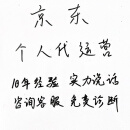 京东
个人代运营
10年经验 实力说话
咨询客服 免费诊断